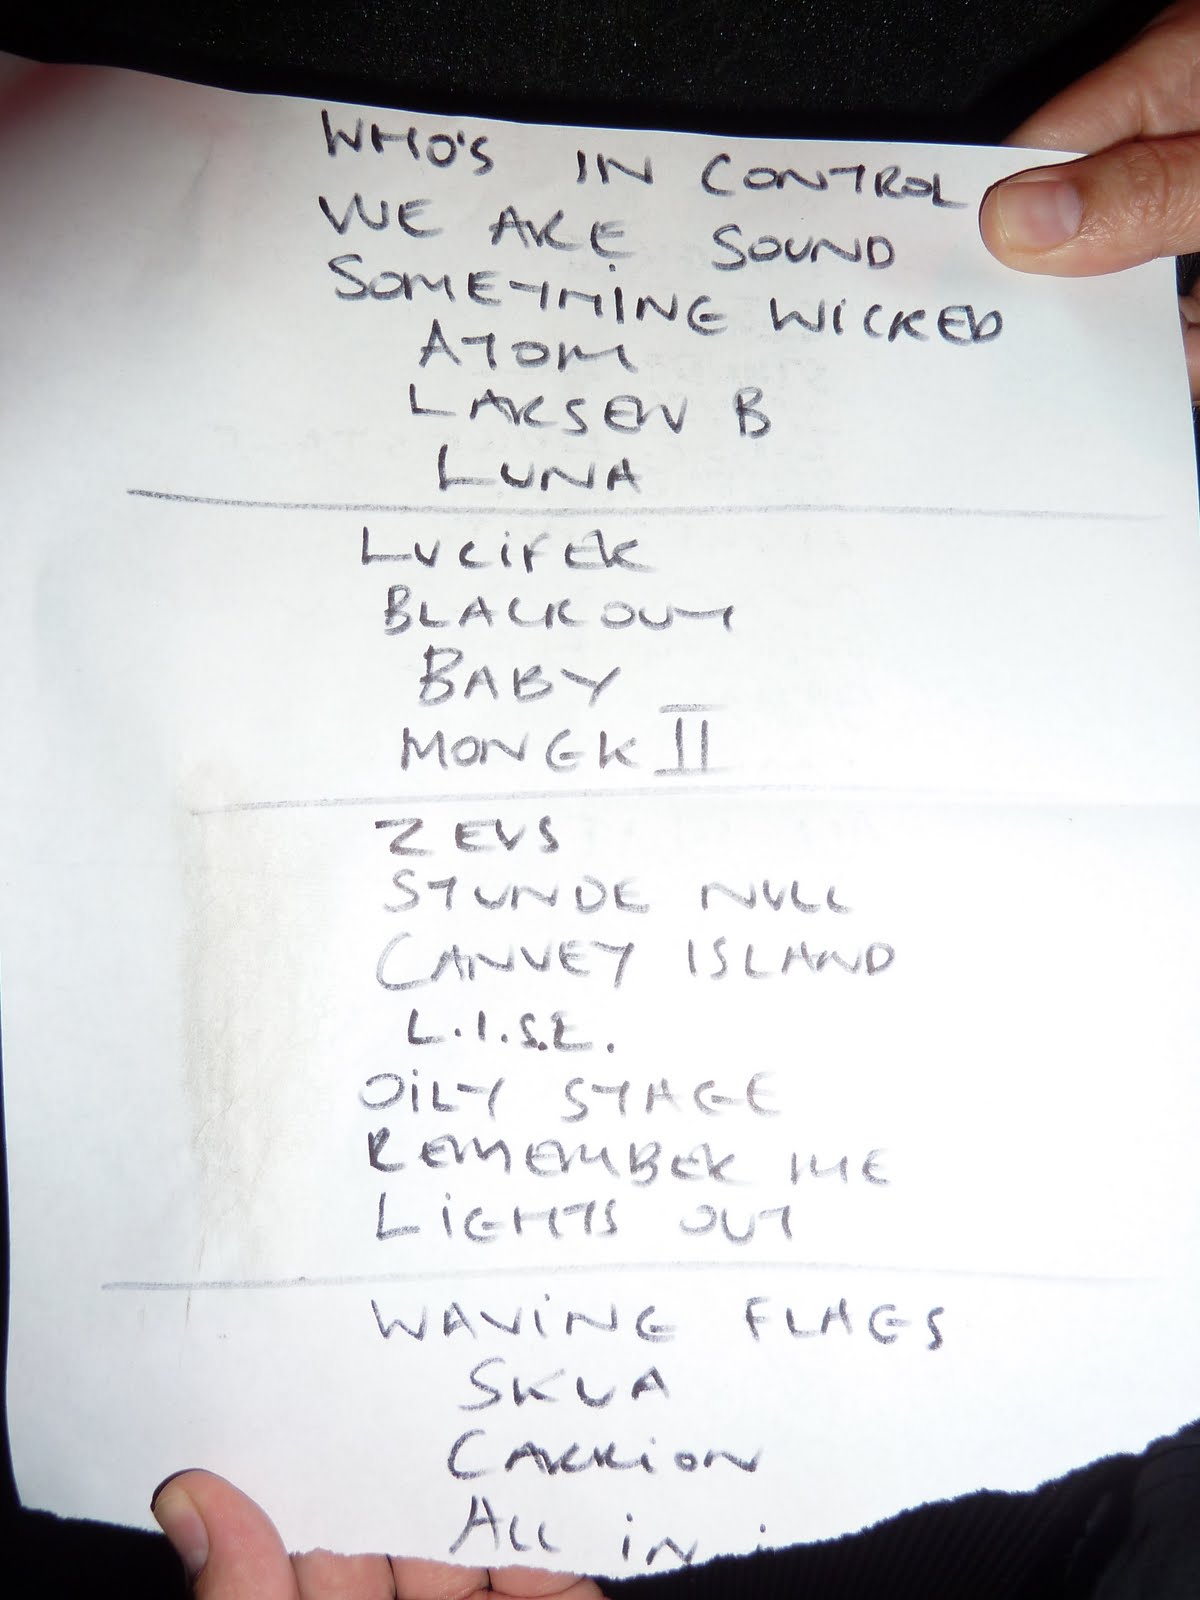 WHO'S IN CONTROL
WE ARE SOUND
SOMETHING WICKED
ATOM
LARSEN B
LUNA
LUCIFER
BLACKOUT
BABY
MONGK II
ZEUS
STUNDE NULL
CANVEY ISLAND
L.I.S.E.
OILY STAGE
REMEMBER ME
LIGHTS OUT
WAVING FLAGS
SKUA
CARRION
ALL IN